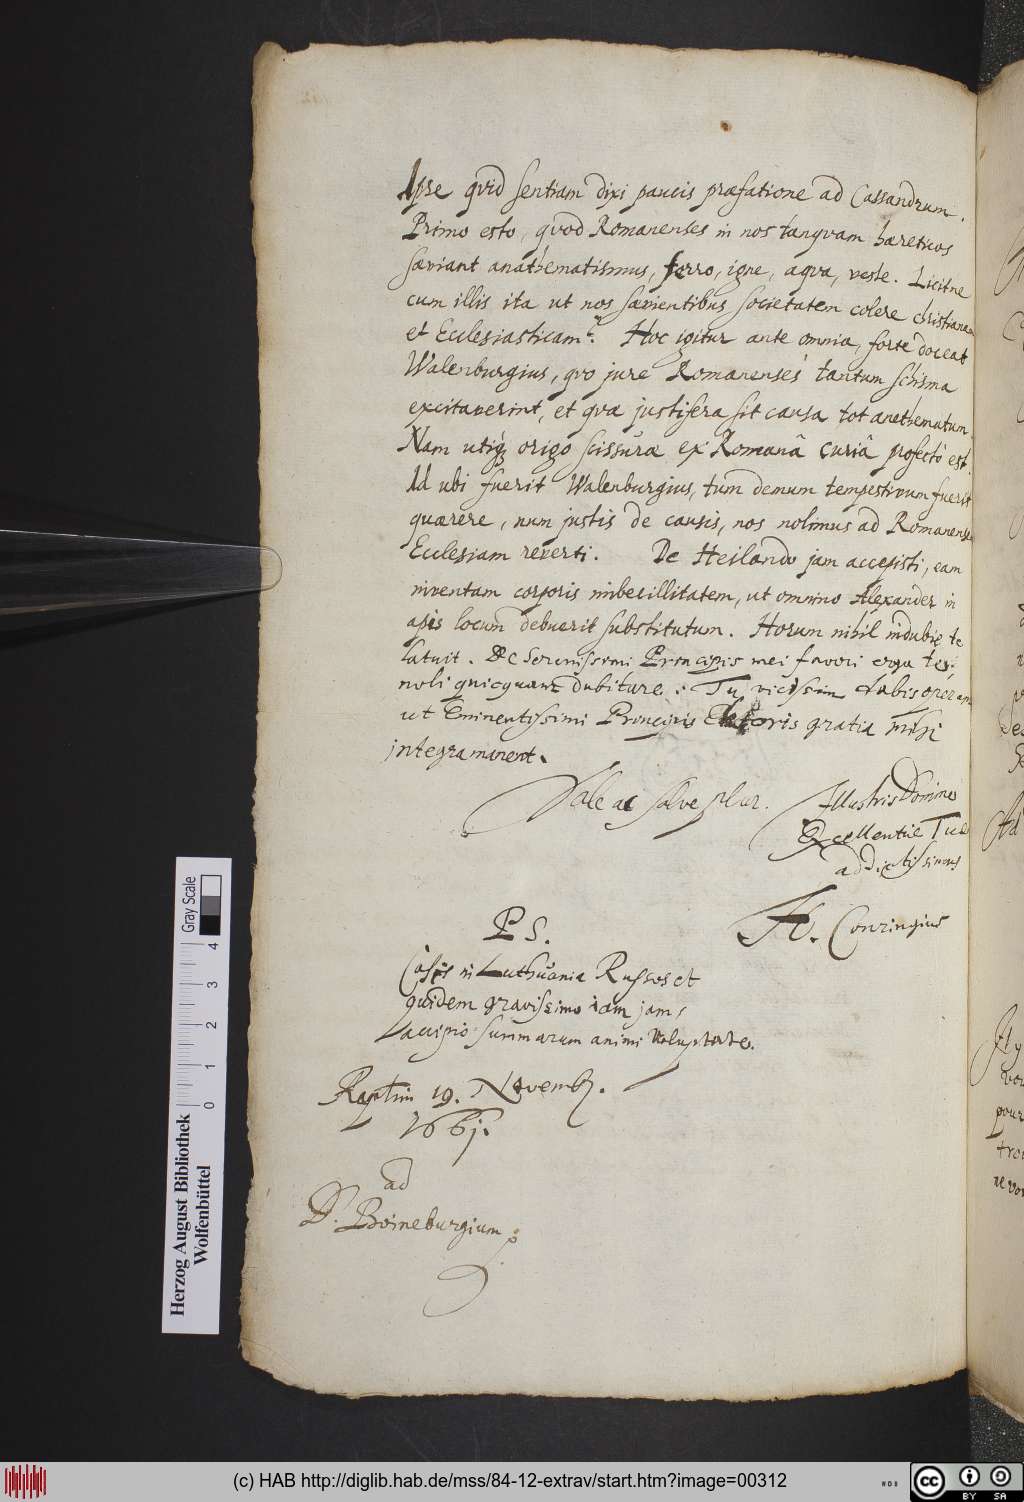 Ipse qvid sentiam dixi paucis præfatione ad Cassandrum.
Primo esto, qvod Romanenses in nos tanqvam hæreticos
sæviant anathematismis, ferro, igne, aqva, veste. Licitne
cum illis ita ut nos sævientibus societatem colere christianam
et Ecclesiasticam? Hoc igitur ante omnia, forte doceat
Walenburgius, qvo jure Romanenses tantum schisma
excitaverint, et qvæ justifera sit causa tot anathematum.
Nam utiq; origo scissuræ ex Romanâ Curiâ profecto est.
Id ubi fuerit Walenburgius, tum demum tempestivum fuerit
quærere, num justis de causis, nos nolimus ad Romanense
Ecclesiam reverti. De Heilando jam accepisti, eam
inventam corporis imbecillitatem, ut omnino Alexander in
locum debuerit substitutum. Horum nihil indubie te
latuit. De Serenissimi Principis mei favori erga te,
noli quicquam dubitare. Tu vicissim dabis operam
ut Eminentissimi Principis Electoris gratia mihi
integra manent.
Vale ac salve plur. Illustris Domine
Excellentiæ Tuæ
addictissimus
H. Conringius
P S.
Cæsis in Luthuania Russos et
quidem gravissimo jam,
accipio summarum animi voluptate.
Raptim 19. Novemb.
1661.
ad
D. Boineburgium
Herzog August Bibliothek
Wolfenbüttel
0 1 2 3 4
Gray Scale
(c) HAB http://diglib.hab.de/mss/84-12-extrav/start.htm?image=00312
cc BY SA